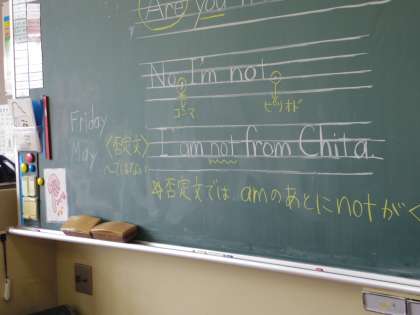 Are you
No, I'm not.
コンマ ピリオド
Friday
May
<否定文> I am not from Chita.
～ではない
☆否定文では amのあとにnotがく